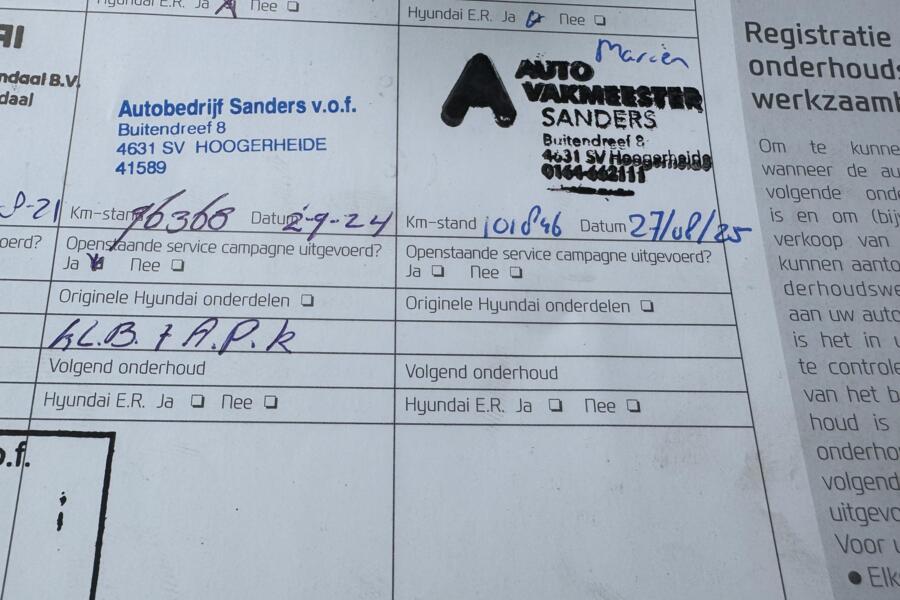 Hyundai E.R. Ja Nee
AI
ndaal B.V.
daal
8-21
oerd?
o.f.
Autobedrijf Sanders v.o.f.
Buitendreef 8
4631 SV HOOGERHEIDE
41589
Km-stand 96368 Datum 2-9-24
Openstaande service campagne uitgevoerd?
Ja Nee
Originele Hyundai onderdelen
KL.B. + A.P.K
Volgend onderhoud
Hyundai E.R. Ja Nee
Hyundai E.R. Ja Nee
Marcèn
AUTO
VAKMEESTER
SANDERS
Buitendreef 8
4631 SV Hoogerheide
0164-662111
Km-stand 101846 Datum 27/08/25
Openstaande service campagne uitgevoerd?
Ja Nee
Originele Hyundai onderdelen
Volgend onderhoud
Hyundai E.R. Ja Nee
Registratie
onderhouds
werkzaamh
Om te kunne
wanneer de au
volgende onde
is en om (bij
verkoop van
kunnen aanto
derhoudswe
aan uw auto
is het in u
te controle
van het b
houd is
onderho
volgend
uitgevo
Voor u
● Elk